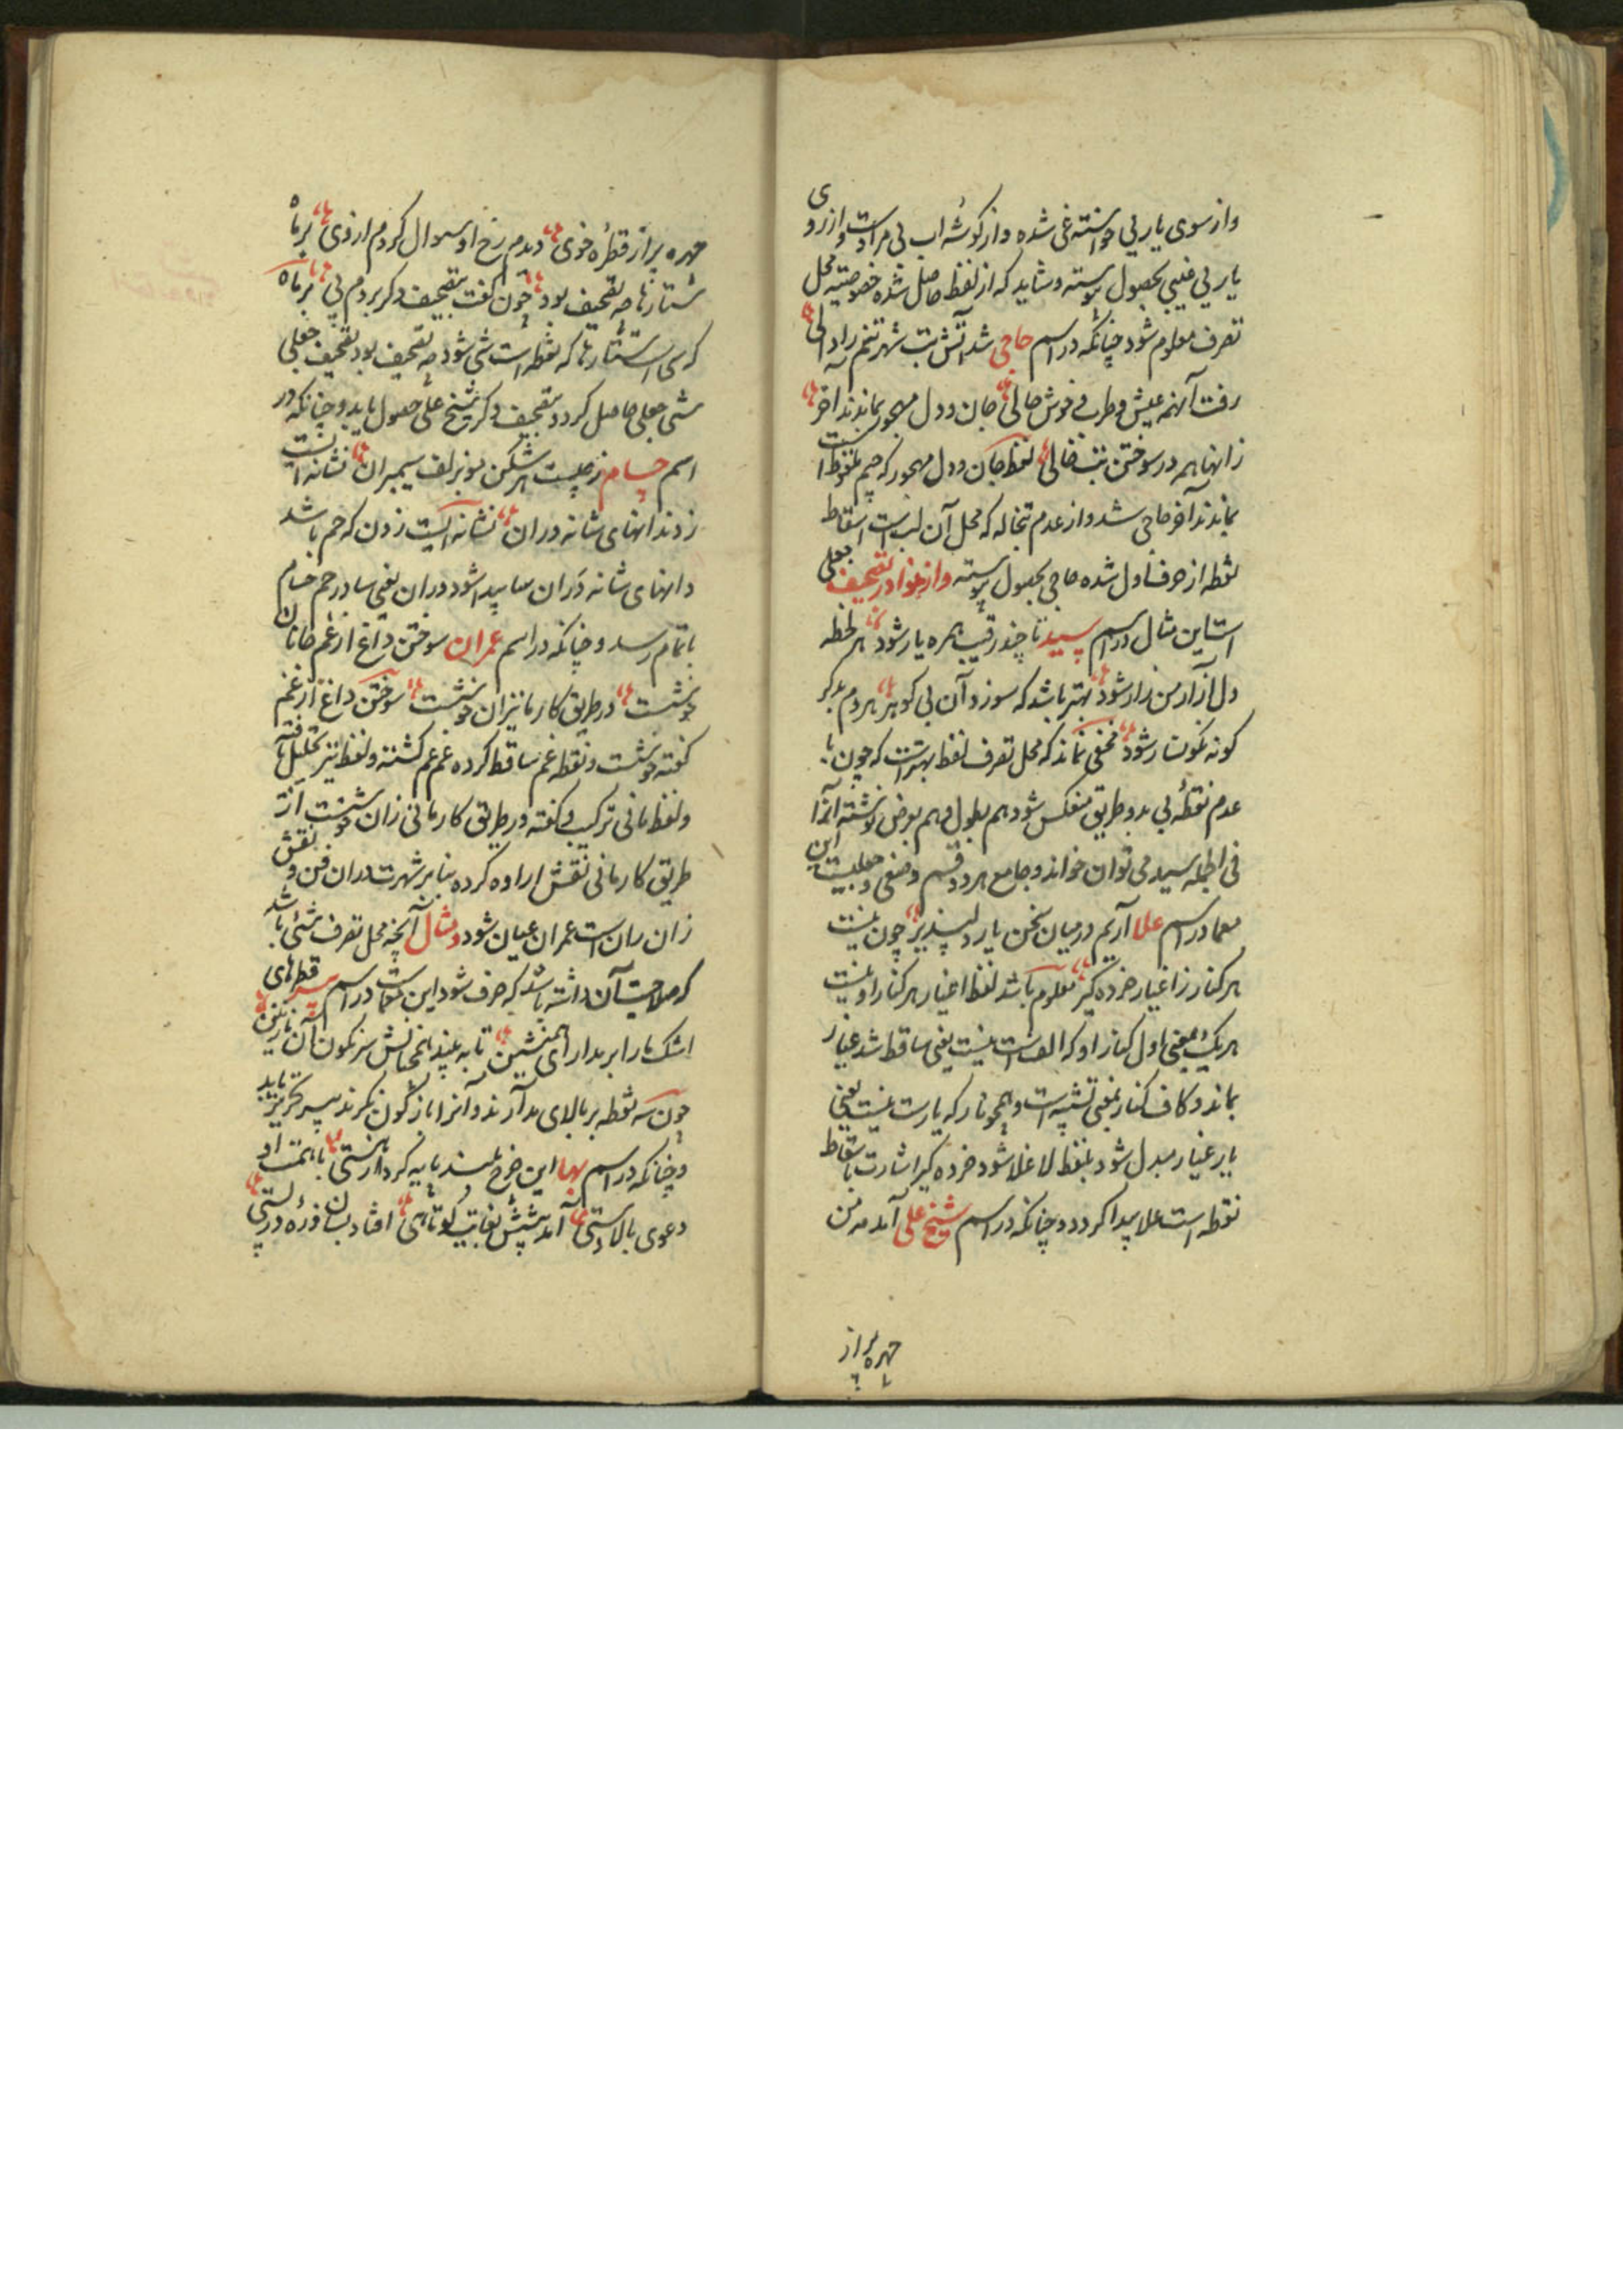 واز سوی یار بی خواسته غی شده واز کوشه اب بی مراد است واز روی
یار بی غیبی بحصول پیوسته وشاید که از لفظ حاصل شده خصوصیته محل
تصرف معلوم شود چنانکه در اسم حاجی شد آتش تب شهر تنم را والی
رفت آنهمه عیش وطرب وخوش حالی جان ودل مهجور بماندند اخر
زانها همه در سوختن تب خالی لفظ جان ودل مهجور که جیم ملفوظ است
بماندند آخر حاجی شد واز عدم تبخاله که محل آن لب است اسقاط
نقطه از حرف اول شده حاجی بحصول پیوسته واز نوادر تصحیف جعلی
است این مثال در اسم سید تا چند رقیب همره یار شود هر لحظه
دل آزار من زار شود بهتر باشد که سوزد آن بی کوهر هر دم بدکر
کونه نکونسار شود مخفی نماند که محل تصرف لفظ بهتر است که چون با
عدم نقطه بی بدو طریق منعکس شود هم بطول وهم بعرض نوشته آنرا
فی الجمله سید می توان خواند وجامع هر دو قسم وضعی وجعلیست این
معما در اسم علا آریم در میان سخن یار دلپذیر چون نیست
هر کنار ز اغیار خرده کیر معلوم باشد لفظ اغیار هر کنار او نیست
هر یک بمعنی اول کنار او که الف است نیست یعنی ساقط شد غیار
بماند وکاف کنار بمعنی تشبیه است وهمچو نار که یارست نیست یعنی
یار غیار مبدل شود بلفظ لا غلا شود خرده کیر اشارت باسقاط
نقطه است علا پیدا کردد وچنانکه در اسم شیخ علی آمد مه من
چهره پر از
چهره پر از قطره خوی دیدم رخ او سوال کردم از وی بر ماه
ستارها چه تصحیف بود چون کفت بتصحیف دکر بردم پی بر ماه
که سی است ستارها که نقطه است شی شود چه تصحیف بود تصحیف جعلی
شی جعلی حاصل کردد بتصحیف دکر شیخ علی حصول یابد وچنانکه در
اسم حسام زچیست هر شکن نو بزلف سیمبران نشانه ایست
ز دندانهای شانه دران نشانه ایست زدن که حم باشد
دانهای شانه دران سا پیدا شود دران یعنی سا در حم حسام
باتمام رسد وچنانکه در اسم عمران سوختن داغ از غم جانان
خوشست در طریق کار ما نیز آن خوشست سوختن داغ از غم
کفته خوشست ونقطه غم ساقط کرده غم عم کشته ولفظ نیز تحلیل یافته
ولفظ مانی ترکیب کفته در طریق کار مانی زان خوشست از
طریق کار مانی نقش اراده کرده بنابر شهرت دران فن ونقش
زان ران است عمران عیان شود ومثال آنچه محل تصرف شیئی باشد
که صلاحیت آن داشته باشد که حرف شود این معماست در اسم سیر قطرهای
اشک ما را بر بدار ای همنشین تا به بیند همچنانش سرنکون آن نازنین
چون سه نقطه بر بالای بد آرند وآنرا باژکون نکرند سیر تحریر یابد
وچنانکه در اسم بها این چرخ بلند پایه کرد از هستی با همت او
دعوی بالادستی آمد پیشش بغایت کوتاهی افتاد بسان ذره در پستی